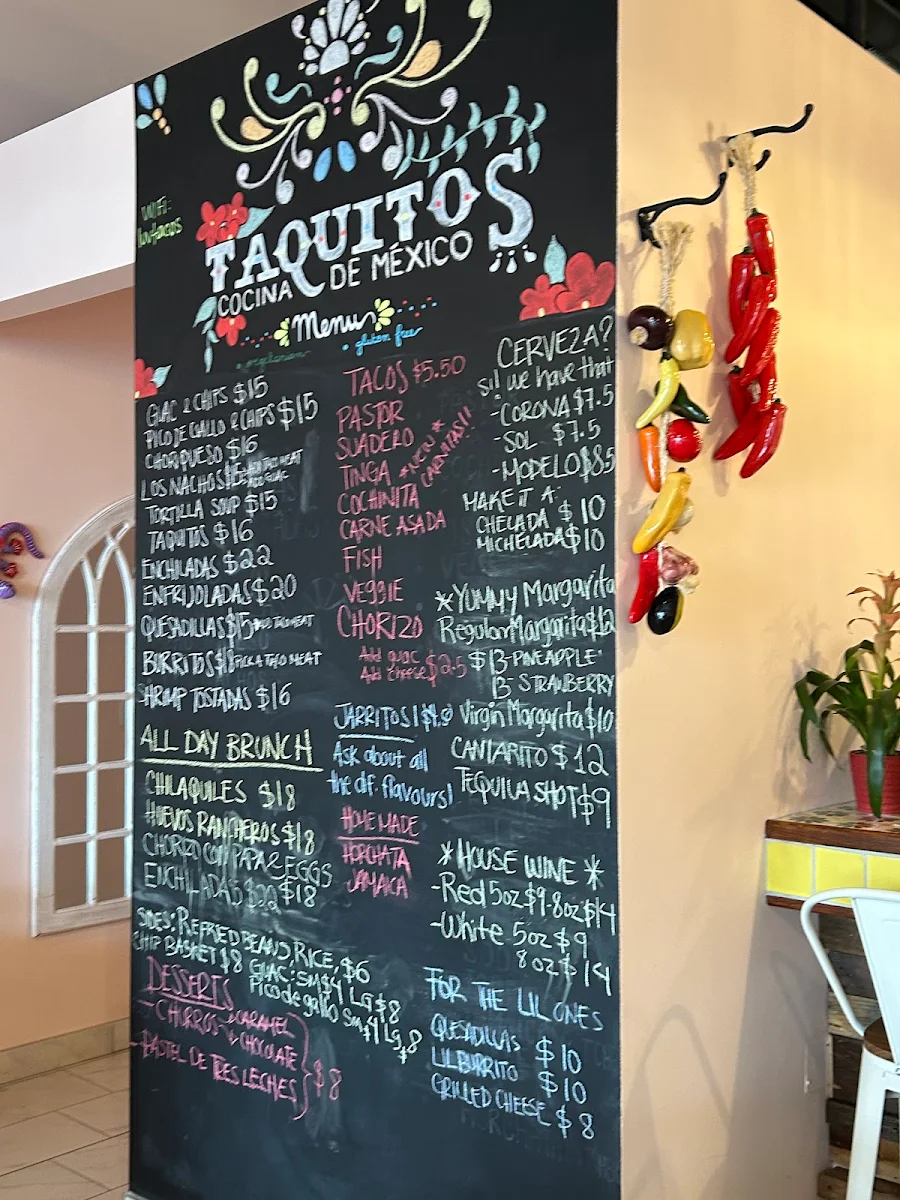 WIFI:
TAQUITOS
COCINA DE MÉXICO
Menu
vegetarian
gluten free
GUAC & CHIPS $15
PICO DE GALLO & CHIPS $15
CHORIQUESO $16
LOS NACHOS $15
TORTILLA SOUP $15
TAQUITOS $16
ENCHILADAS $22
ENFRIJOLADAS $20
QUESADILLAS $15
BURRITOS $18 PICK A TACO MEAT
SHRIMP TOSTADAS $16
ALL DAY BRUNCH
CHILAQUILES $18
HUEVOS RANCHEROS $18
CHORIZO CON PAPA & EGGS
$18
ENCHILADAS $22
SIDES: REFRIED BEANS, RICE, $6
CHIP BASKET $8 GUAC: SM $4 LG $8
Pico de gallo Sm $4 Lg $8
DESSERTS
- CHURROS CARAMEL
CHOCOLATE
- PASTEL DE TRES LECHES } $8
TACOS $5.50
PASTOR
SUADERO
TINGA
*NEW*
CARNITAS!!
COCHINITA
CARNE ASADA
FISH
VEGGIE
CHORIZO
Add guac
Add cheese $2.5
JARRITOS
Ask about all
the dif. flavours!
HOMEMADE
HORCHATA
JAMAICA
CERVEZA?
Si! we have that
-CORONA $7.5
-SOL $7.5
-MODELO $8.5
MAKE IT A:
CHELADA $10
MICHELADA $10
*YUMMY Margarita
Regular Margarita $12
$13-PINEAPPLE
13- STRAWBERRY
Virgin Margarita $10
CANTARITO $12
TEQUILA SHOT $9
*HOUSE WINE*
-Red 5oz $9-8oz $14
-White 5oz $9
8oz $14
FOR THE LIL ONES
QUESADILLAS $10
LIL BURRITO $10
GRILLED CHEESE $8